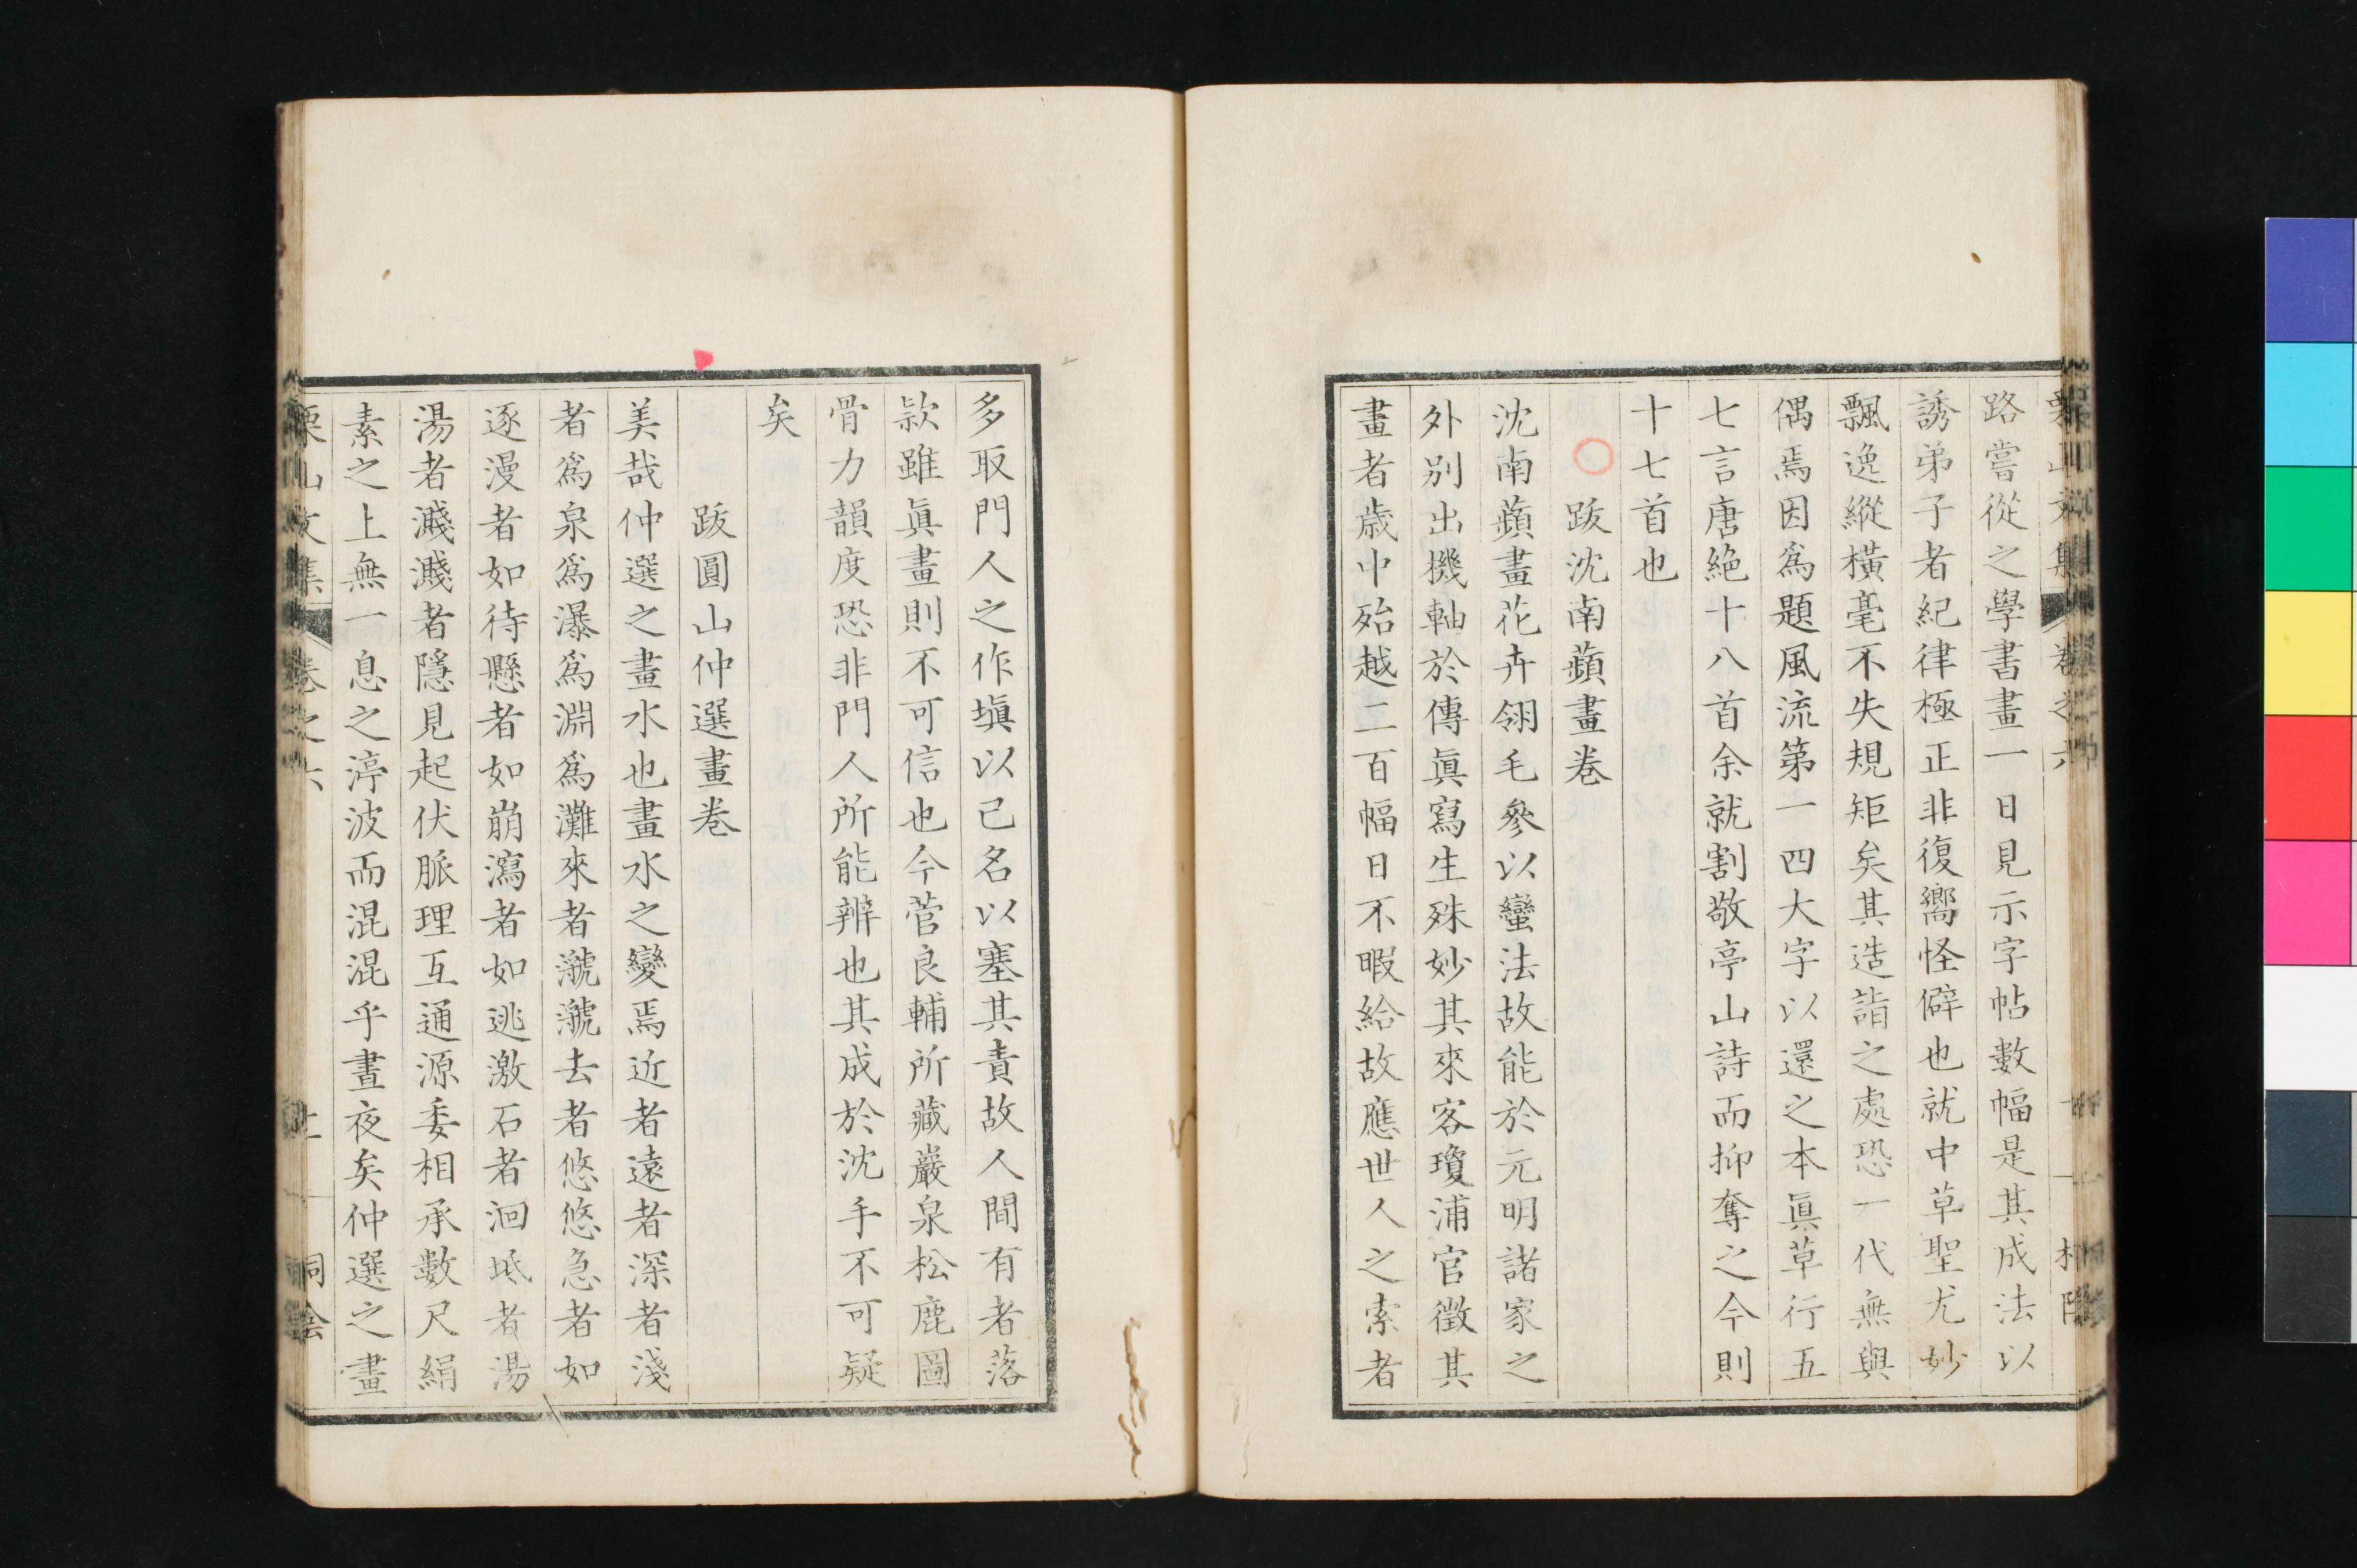 路嘗從之學書畫一日見示字帖數幅是其成法以
誘弟子者紀律極正非復嚮怪僻也就中草聖尤妙
飄逸縱橫毫不失規矩矣其造詣之處恐一代無與
偶焉因爲題風流第一四大字以還之本眞草行五
七言唐絶十八首余就割敬亭山詩而抑奪之今則
十七首也
跋沈南蘋畫卷
沈南蘋畫花卉翎毛參以蠻法故能於元明諸家之
外別出機軸於傳眞寫生殊妙其來客瓊浦官徵其
畫者歲中殆越二百幅日不暇給故應世人之索者
多取門人之作塡以己名以塞其責故人間有者落
款雖眞畫則不可信也今菅良輔所藏巖泉松鹿圖
骨力韻度恐非門人所能辨也其成於沈手不可疑
矣
跋圓山仲選畫卷
美哉仲選之畫水也畫水之變焉近者遠者深者淺
者爲泉爲瀑爲淵爲灘來者瀧瀧去者悠悠急者如
逐漫者如待懸者如崩瀉者如逃激石者洄坻者湯
湯者濺濺者隱見起伏脈理互通源委相承數尺絹
素之上無一息之渟波而混混乎晝夜矣仲選之畫
栗山文集 卷之六